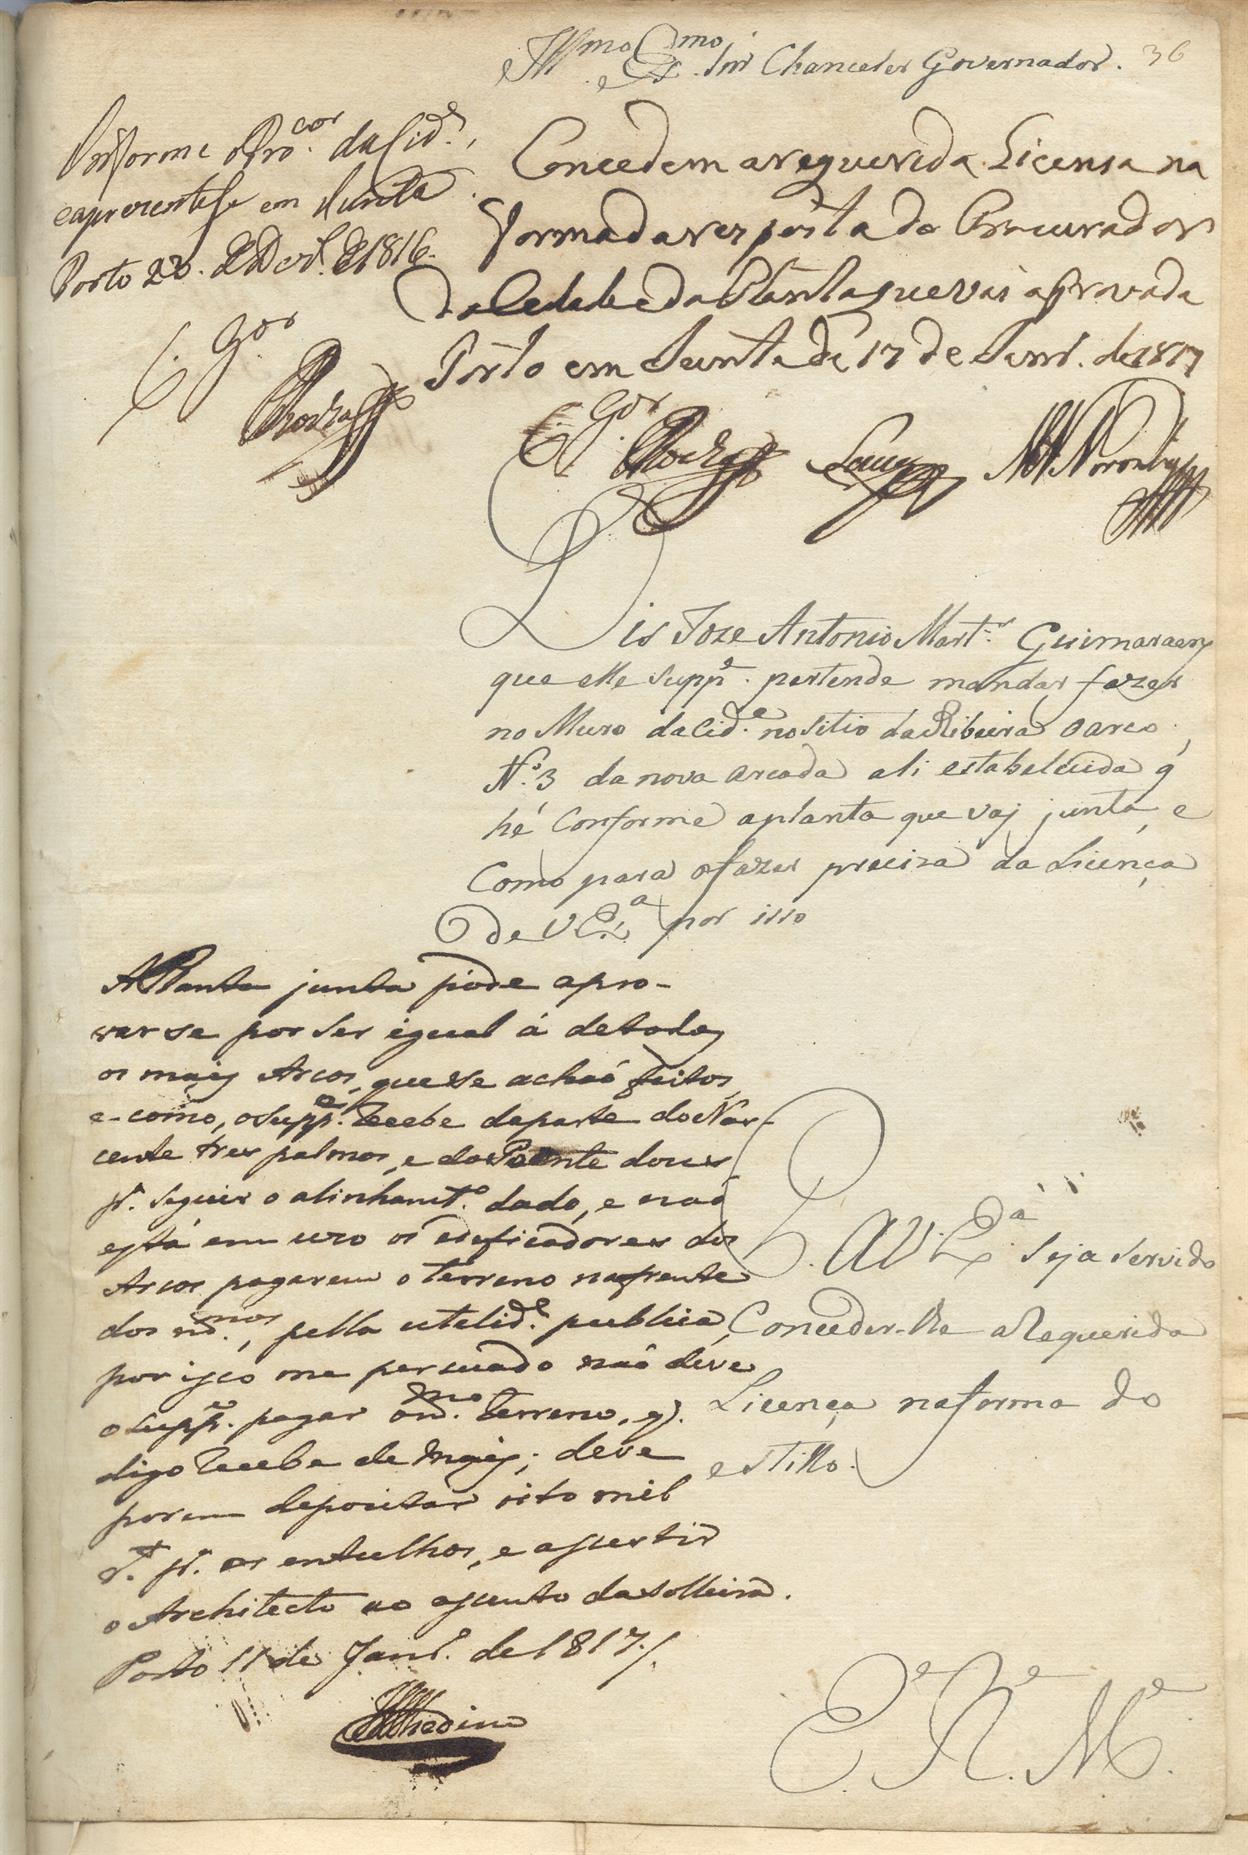 Illmo e Exmo Snr Chanceler Governador.
36
Informe o Procor da Cide,
e aprezentese em Junta
Porto 23. de Dezr. de 1816.
C. Gor
Rocha
Concedem a requerida Licensa na
forma da resposta do Procurador
da Cidade e da Planta que vai aprovada
Porto em Junta de 17 de Janr. de 1817
C. Gor Rocha
Noronha
Dis Joze Antonio Marts Guimaraens
que elle Suppe. pertende mandar fazer
no Muro da Cide no sitio da Ribeira o arco
No. 3 da nova arcada ali estabelecida q
hé Conforme a planta que vai junta, e
Como para o fazer preciza da Licença
de V Exa por isso
P. A V. Exa. Seja Servido
Conceder-lhe a Requerida
Licença na forma do
estillo.
E. R. Mce.
A Planta junta pode apro-
varse por ser igual á de todos
os mais Arcos, que se achaõ feitos,
e como, o Suppe. recebe da parte do Nas-
cente tres palmos, e do Poente dous
pa. seguir o alinhamto. dado, e naõ
está em uzo os edeficadores dos
Arcos pagarem o terreno na frente
dos mesmos, pella utelide. publica,
por isço me persuado naõ deve
o Suppe. pagar o mmo. terreno, q.
digo recebe de mais; deve
porem depozitar oito mil
rs. pa. os entulhos, e asçestir
o Architecto ao asçento da solleira.
Porto 11 de Janro. de 1817/.